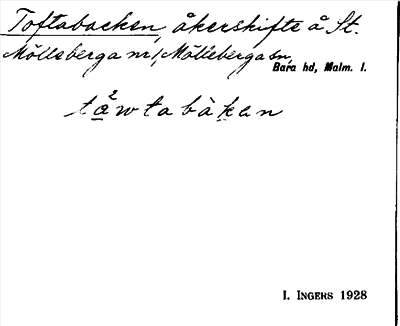 Toftabacken, åkerskifte å St.
Mölleberganr 1, Mölleberga sn,
Bara hd, Malm. l.
tåwtabàkan
I. INGERS 1928